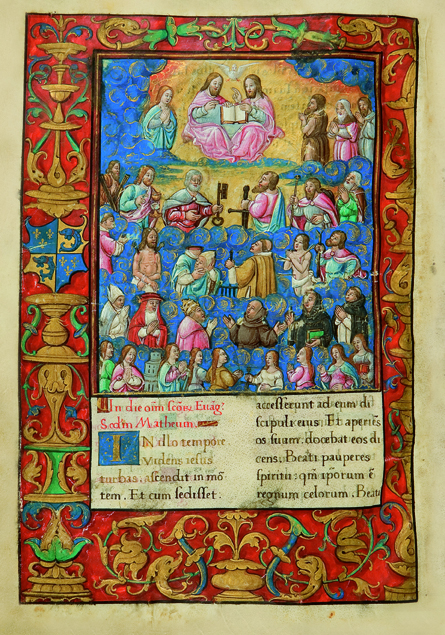 In die oīm scōrꝝ Euāg:
Scdm̄ Matheum.
IN illo tempore.
Videns iesus
turbas, ascendit in mō
tem. Et cum sedisset:
accesserunt ad eum di
scipuli eius. Et aperiēs
os suum: docebat eos di
cens. Beati pauperes
spiritu: qm̄ ip̄orum ē
regnum celorum. Beati